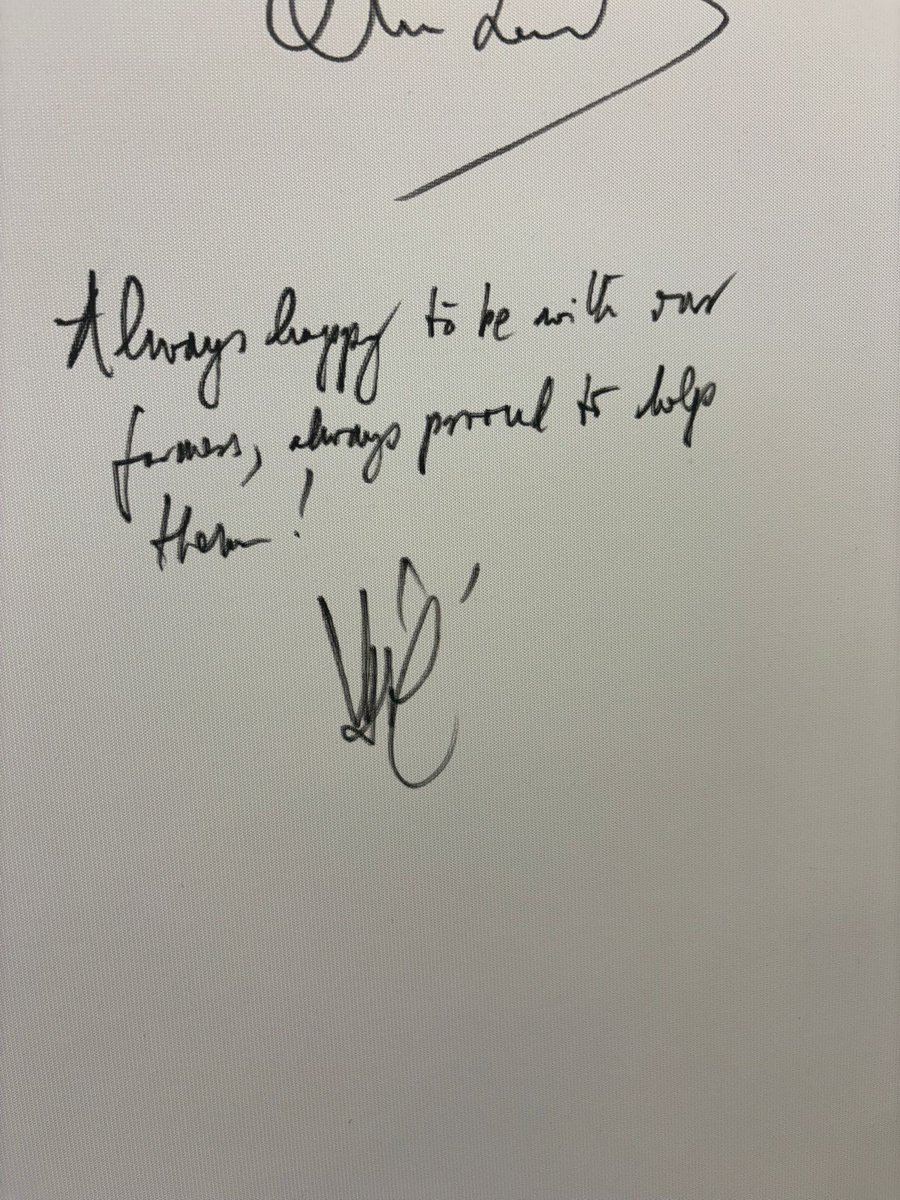 Always happy to be with our
farmers, always proud to help
them!